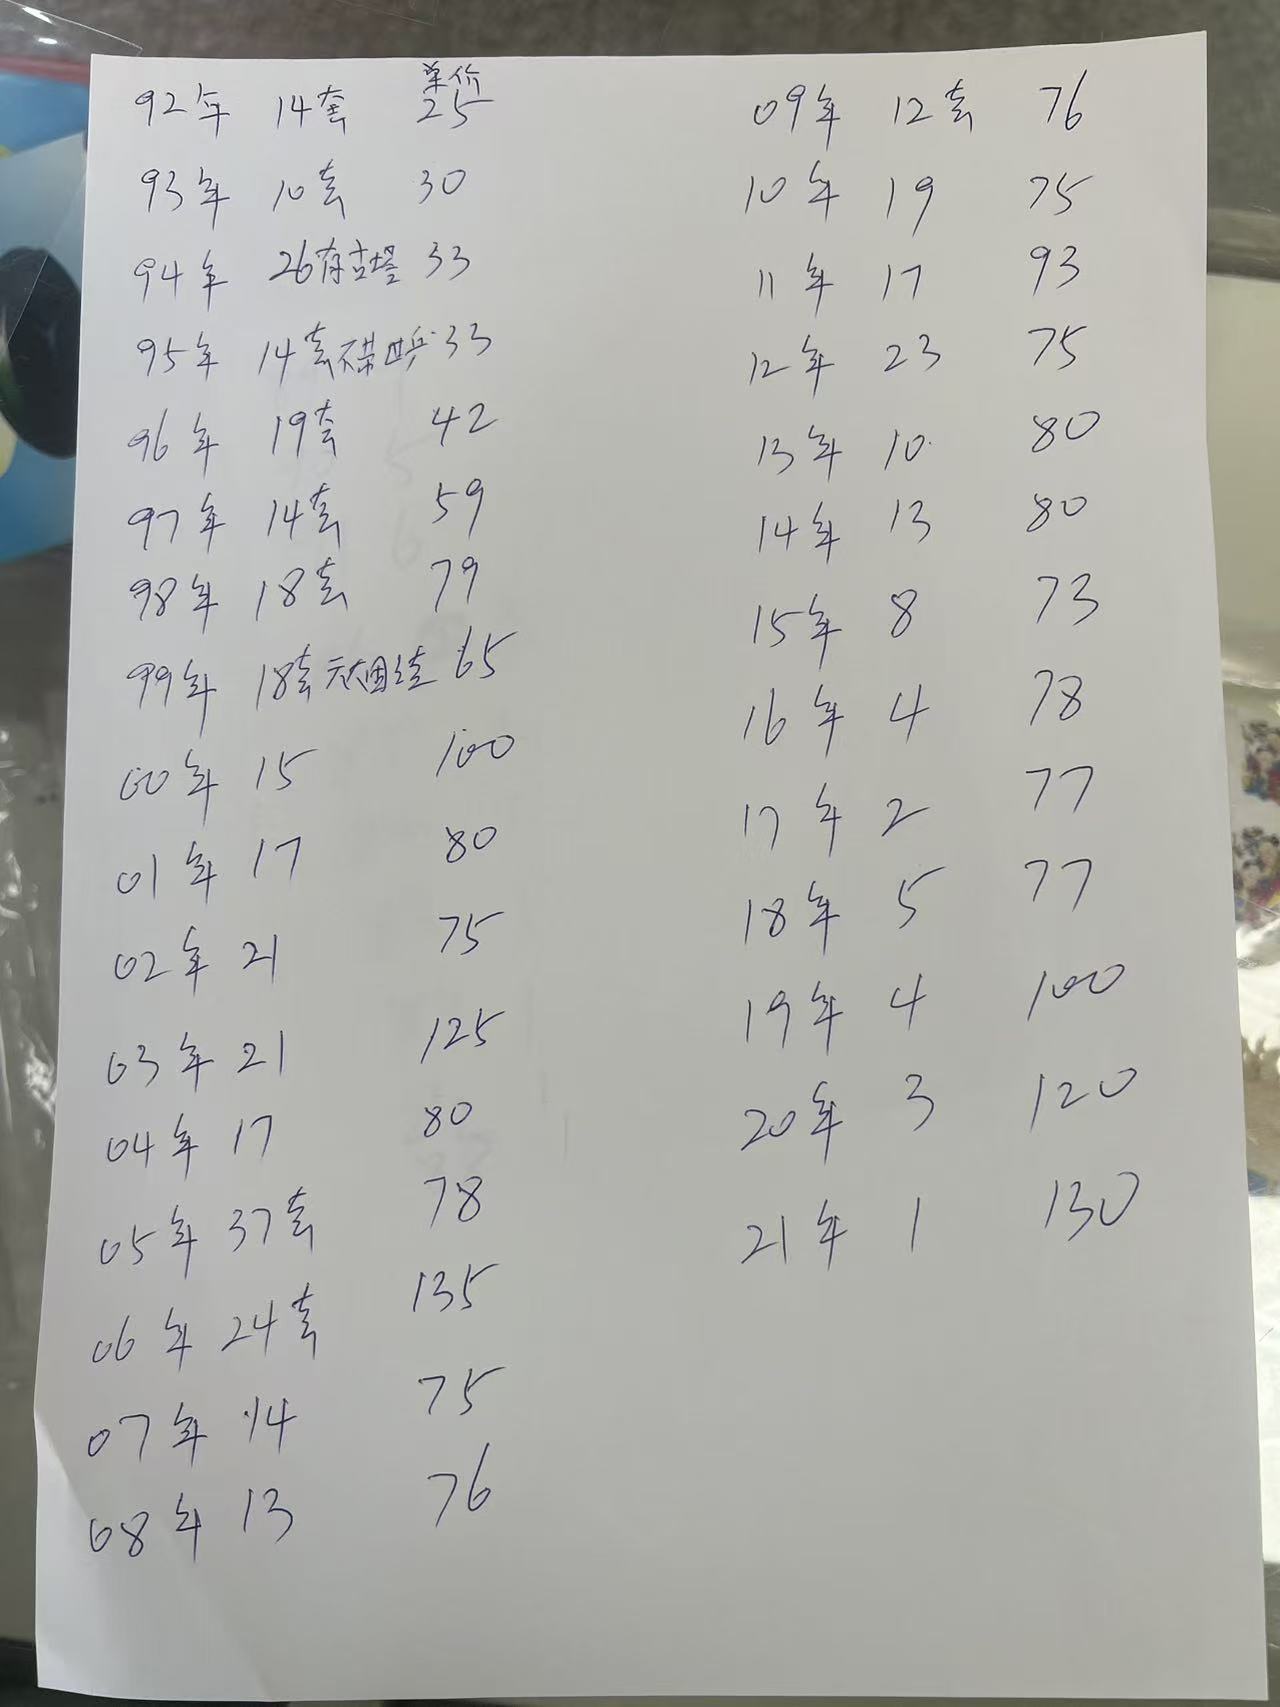 单价
92年 14套 25
93年 10套 30
94年 26有古塔 33
95年 14套不带世乒 33
96年 19套 42
97年 14套 59
98年 18套 79
99年 18套无大团结 65
00年 15 100
01年 17 80
02年 21 75
03年 21 125
04年 17 80
05年 37套 78
06年 24套 135
07年 14 75
08年 13 76
09年 12套 76
10年 19 75
11年 17 93
12年 23 75
13年 10 80
14年 13 80
15年 8 73
16年 4 78
17年 2 77
18年 5 77
19年 4 100
20年 3 120
21年 1 130